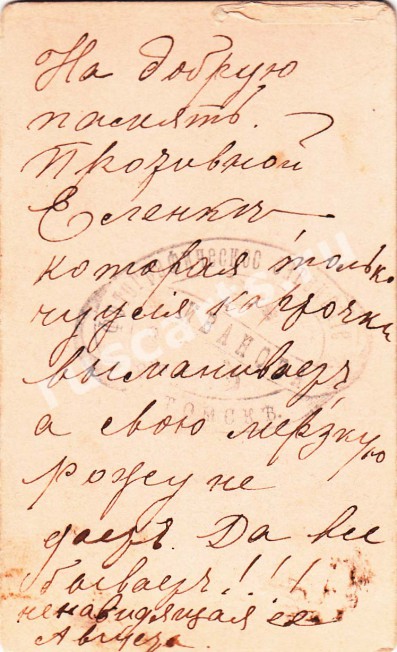 На добрую
память.
Противной
Еленки
которая только
чужия карточки
выманиваетъ
а свою мерзкую
рожу не
даетъ. Да все
бываетъ!!!
ненавидящая ее
Августа
ИВАНОВА
ТОМСКѢ.
ruscarts.ru